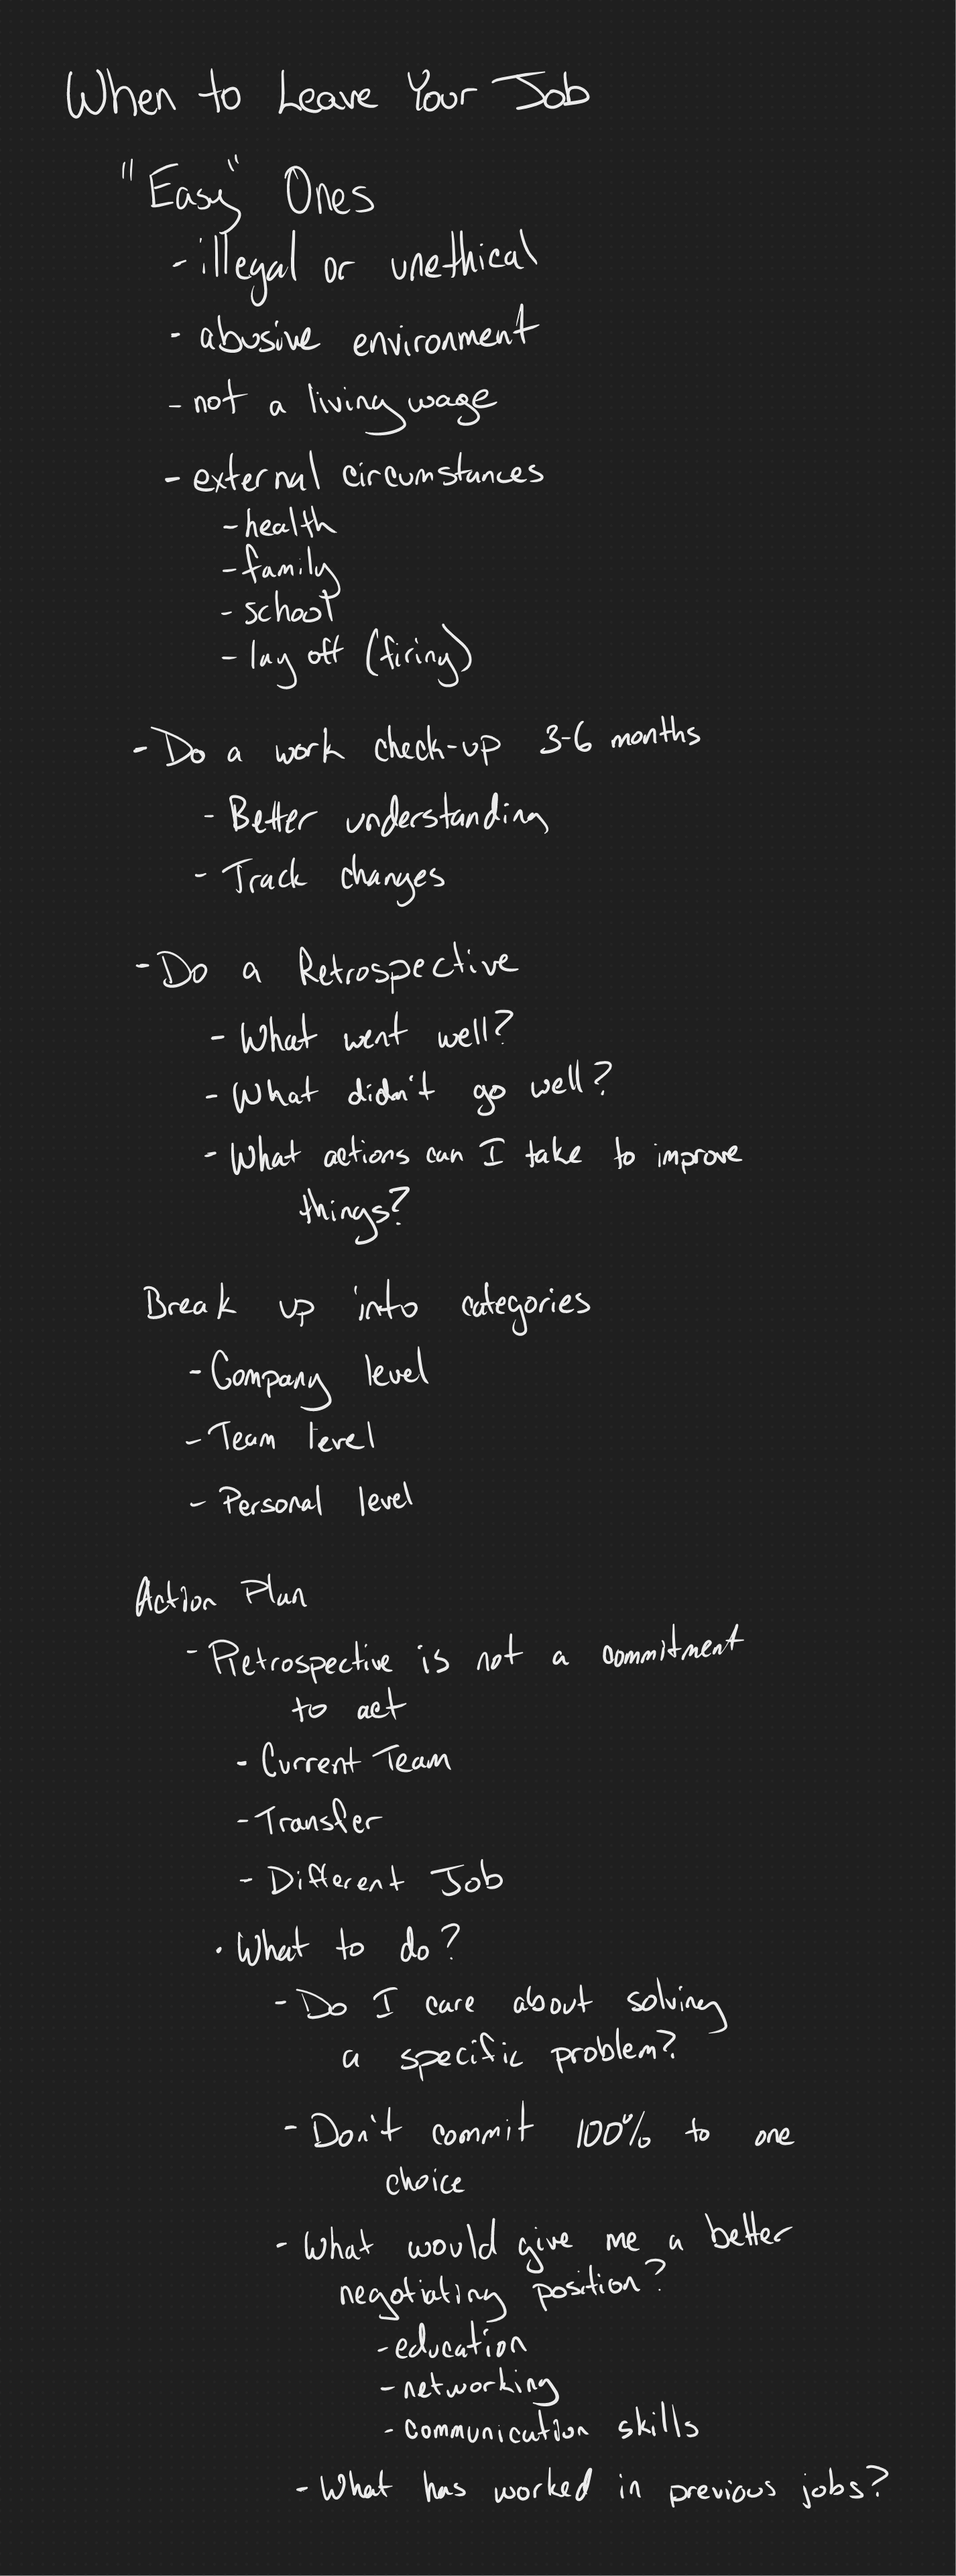 When to Leave Your Job
"Easy" Ones
- illegal or unethical
- abusive environment
- not a living wage
- external circumstances
- health
- family
- school
- lay off (firing)
- Do a work check-up 3-6 months
- Better understanding
- Track changes
- Do a Retrospective
- What went well?
- What didn't go well?
- What actions can I take to improve
things?
Break up into categories
- Company level
- Team level
- Personal level
Action Plan
- Retrospective is not a commitment
to act
- Current Team
- Transfer
- Different Job
• What to do?
- Do I care about solving
a specific problem?
- Don't commit 100% to one
choice
- What would give me a better
negotiating position?
- education
- networking
- communication skills
- What has worked in previous jobs?